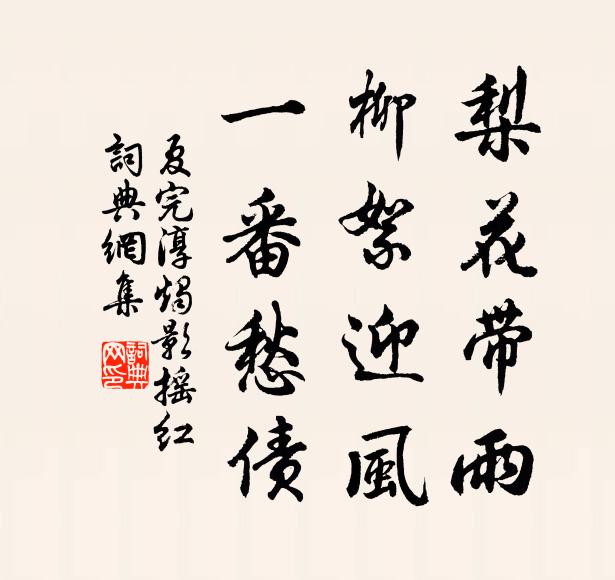 梨花带雨
柳絮迎風
一番愁債
夏完淳燭影摇红
詞典網集
詞典网印